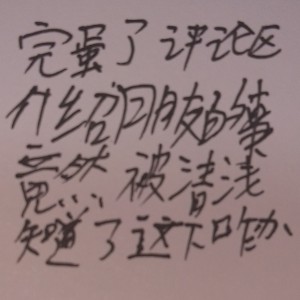 完蛋了评论区
介绍朋友的事
竟然被清浅
知道了这下咋办